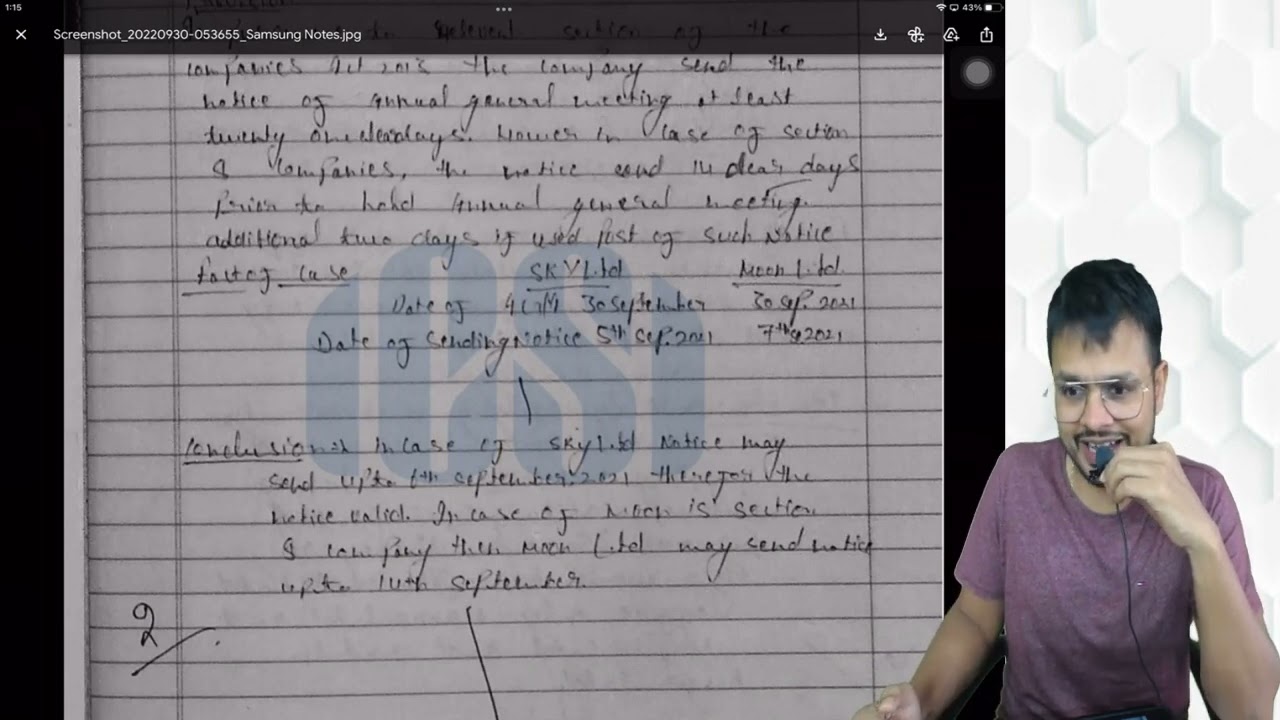 1:15
43%
Screenshot_20220930-053655_Samsung Notes.jpg
section of the
companies Act 2013 the company send the
notice of Annual general meeting at least
twenty one cleardays. Hower in case of section
8 companies, the notice send 14 clear days
prior to hold Annual general meeting.
additional two days if used Post of such Notice
fact of case SKY Ltd Moon Ltd.
Date of AGM 30 September 30 Sep. 2021
Date of sending Notice 5th Sep. 2021 7th Sep 2021
Conclusion⇒ In case of Sky Ltd Notice may
send upto 6th september 2021 therefor the
notice valid. In case of Moon is section
8 company then Moon Ltd may send notice
upto 14th september.
2
ICSI